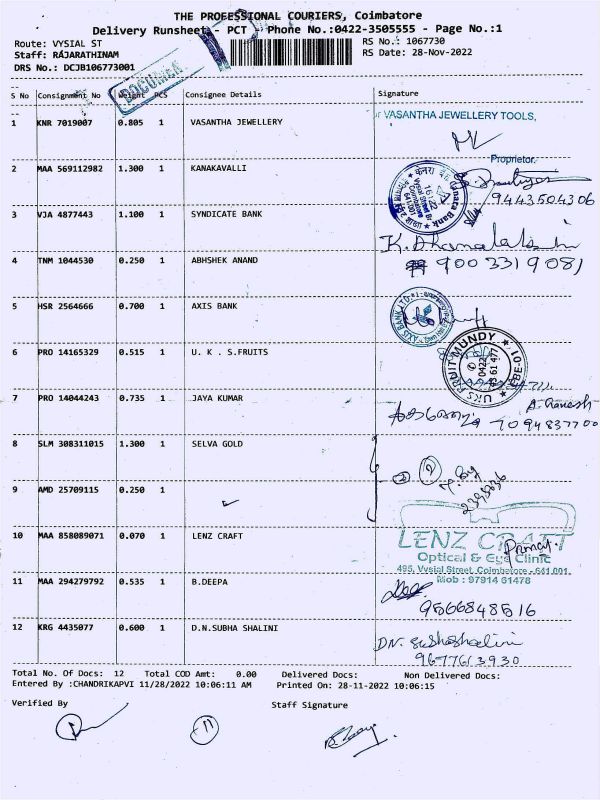 THE PROFESSIONAL COURIERS, Coimbatore
Delivery Runsheet - PCT - Phone No.:0422-3505555 - Page No.:1
Route: VYSIAL ST
RS No.: 1067730
Staff: RAJARATHINAM
RS Date: 28-Nov-2022
DRS No.: DCJB106773001
DOCUMEN
S No Consignment No Weight PCS Consignee Details Signature
1 KNR 7019007 0.805 1 VASANTHA JEWELLERY
VASANTHA JEWELLERY TOOLS,
Proprietor.
2 MAA 569112982 1.300 1 KANAKAVALLI
9443504306
3 VJA 4877443 1.100 1 SYNDICATE BANK
K. Dhanalakshmi
4 TNM 1044530 0.250 1 ABHSHEK ANAND
9003319081
5 HSR 2564666 0.700 1 AXIS BANK
AXIS BANK LTD
6 PRO 14165329 0.515 1 U. K . S.FRUITS
UKS FRUIT MUNDY
0422
7 PRO 14044243 0.735 1 JAYA KUMAR
A. Ganesh
7094837700
8 SLM 308311015 1.300 1 SELVA GOLD
2
9 AMD 25709115 0.250 1
10 MAA 858089071 0.070 1 LENZ CRAFT
LENZ CRAFT
Optical & Eye Clinic
495, Vysial Street, Coimbatore - 641 001.
Mob : 97914 61478
11 MAA 294279792 0.535 1 B.DEEPA
9566848516
12 KRG 4435077 0.600 1 D.N.SUBHA SHALINI
DN. Subhashalini
9677613930
Total No. Of Docs: 12 Total COD Amt: 0.00 Delivered Docs: Non Delivered Docs:
Entered By :CHANDRIKAPVI 11/28/2022 10:06:11 AM Printed On: 28-11-2022 10:06:15
Verified By
Staff Signature
11